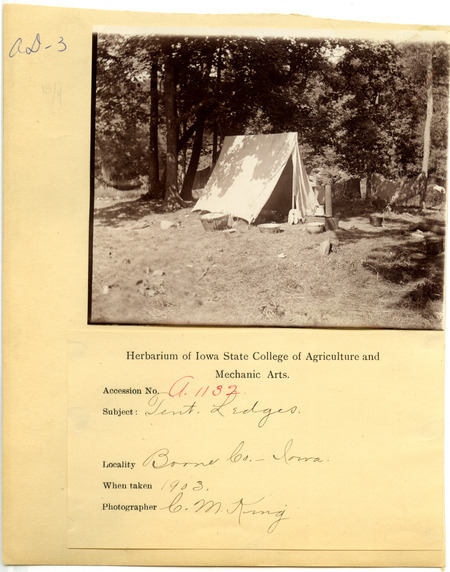 AD-3
Herbarium of Iowa State College of Agriculture and
Mechanic Arts.
Accession No. A. 1132
Subject: Tent. Ledges.
Locality Boone Co. - Iowa.
When taken 1903.
Photographer C. M. King